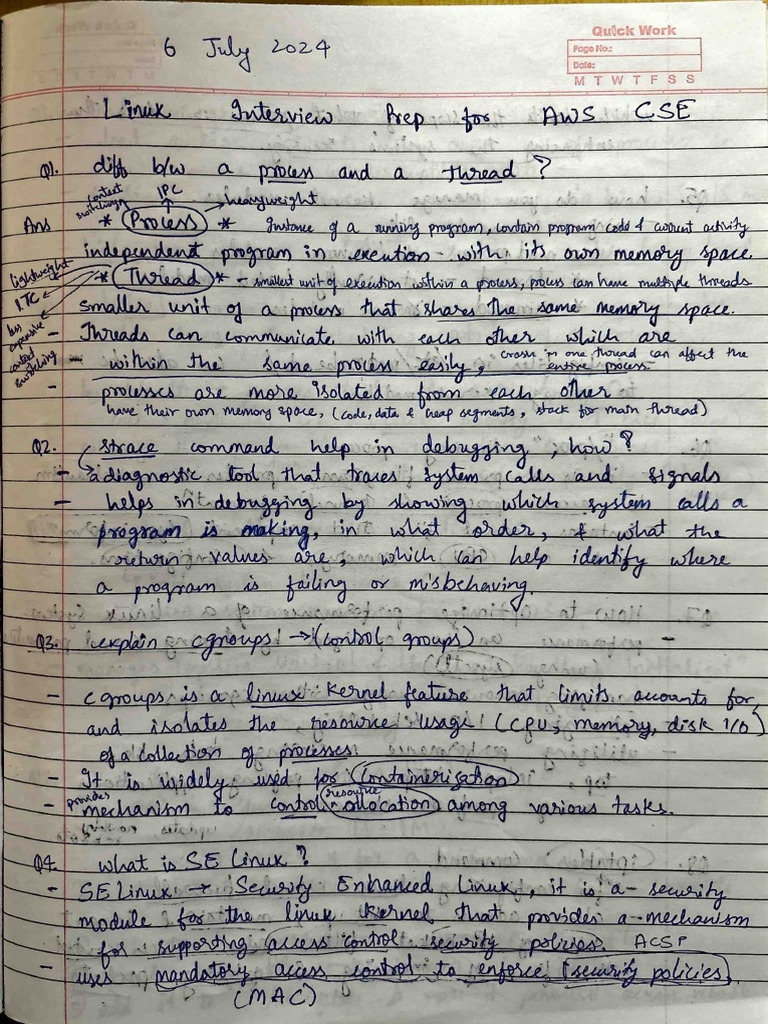 Quick Work
Page No.:
Date:
M T W T F S S
6 July 2024
Linux Interview Prep for AWS CSE
Q1. diff b/w a process and a thread ?
context switching IPC heavyweight
Ans * Process * Instance of a running program, contain program code & current activity
independent program in execution with its own memory space.
lightweight * Thread * - smallest unit of execution within a process, process can have multiple threads
ITC
smaller unit of a process that shares the same memory space.
less expensive context switching
- Threads can communicate with each other which are
within the same process easily, crash in one thread can affect the entire process.
- processes are more isolated from each other
have their own memory space, (code, data & heap segments, stack for main thread)
Q2. strace command help in debugging", how ?
- a diagnostic tool that traces system calls and signals
- helps in debugging by showing which system calls a
program is making, in what order, & what the
return values are, which can help identify where
a program is failing or misbehaving.
Q3. explain cgroups → (control groups)
- cgroups is a linux kernel feature that limits accounts for,
and isolates the resource usage (CPU, memory, disk I/O)
of a collection of processes
- It is widely used for containerization
- provides mechanism to control resource allocation among various tasks.
Q4. What is SE Linux ?
- SE Linux → Security Enhanced Linux, it is a security
module for the linux kernel that provides a mechanism
for supporting access control security policies. ACSP
- uses mandatory access control to enforce security policies
(MAC)